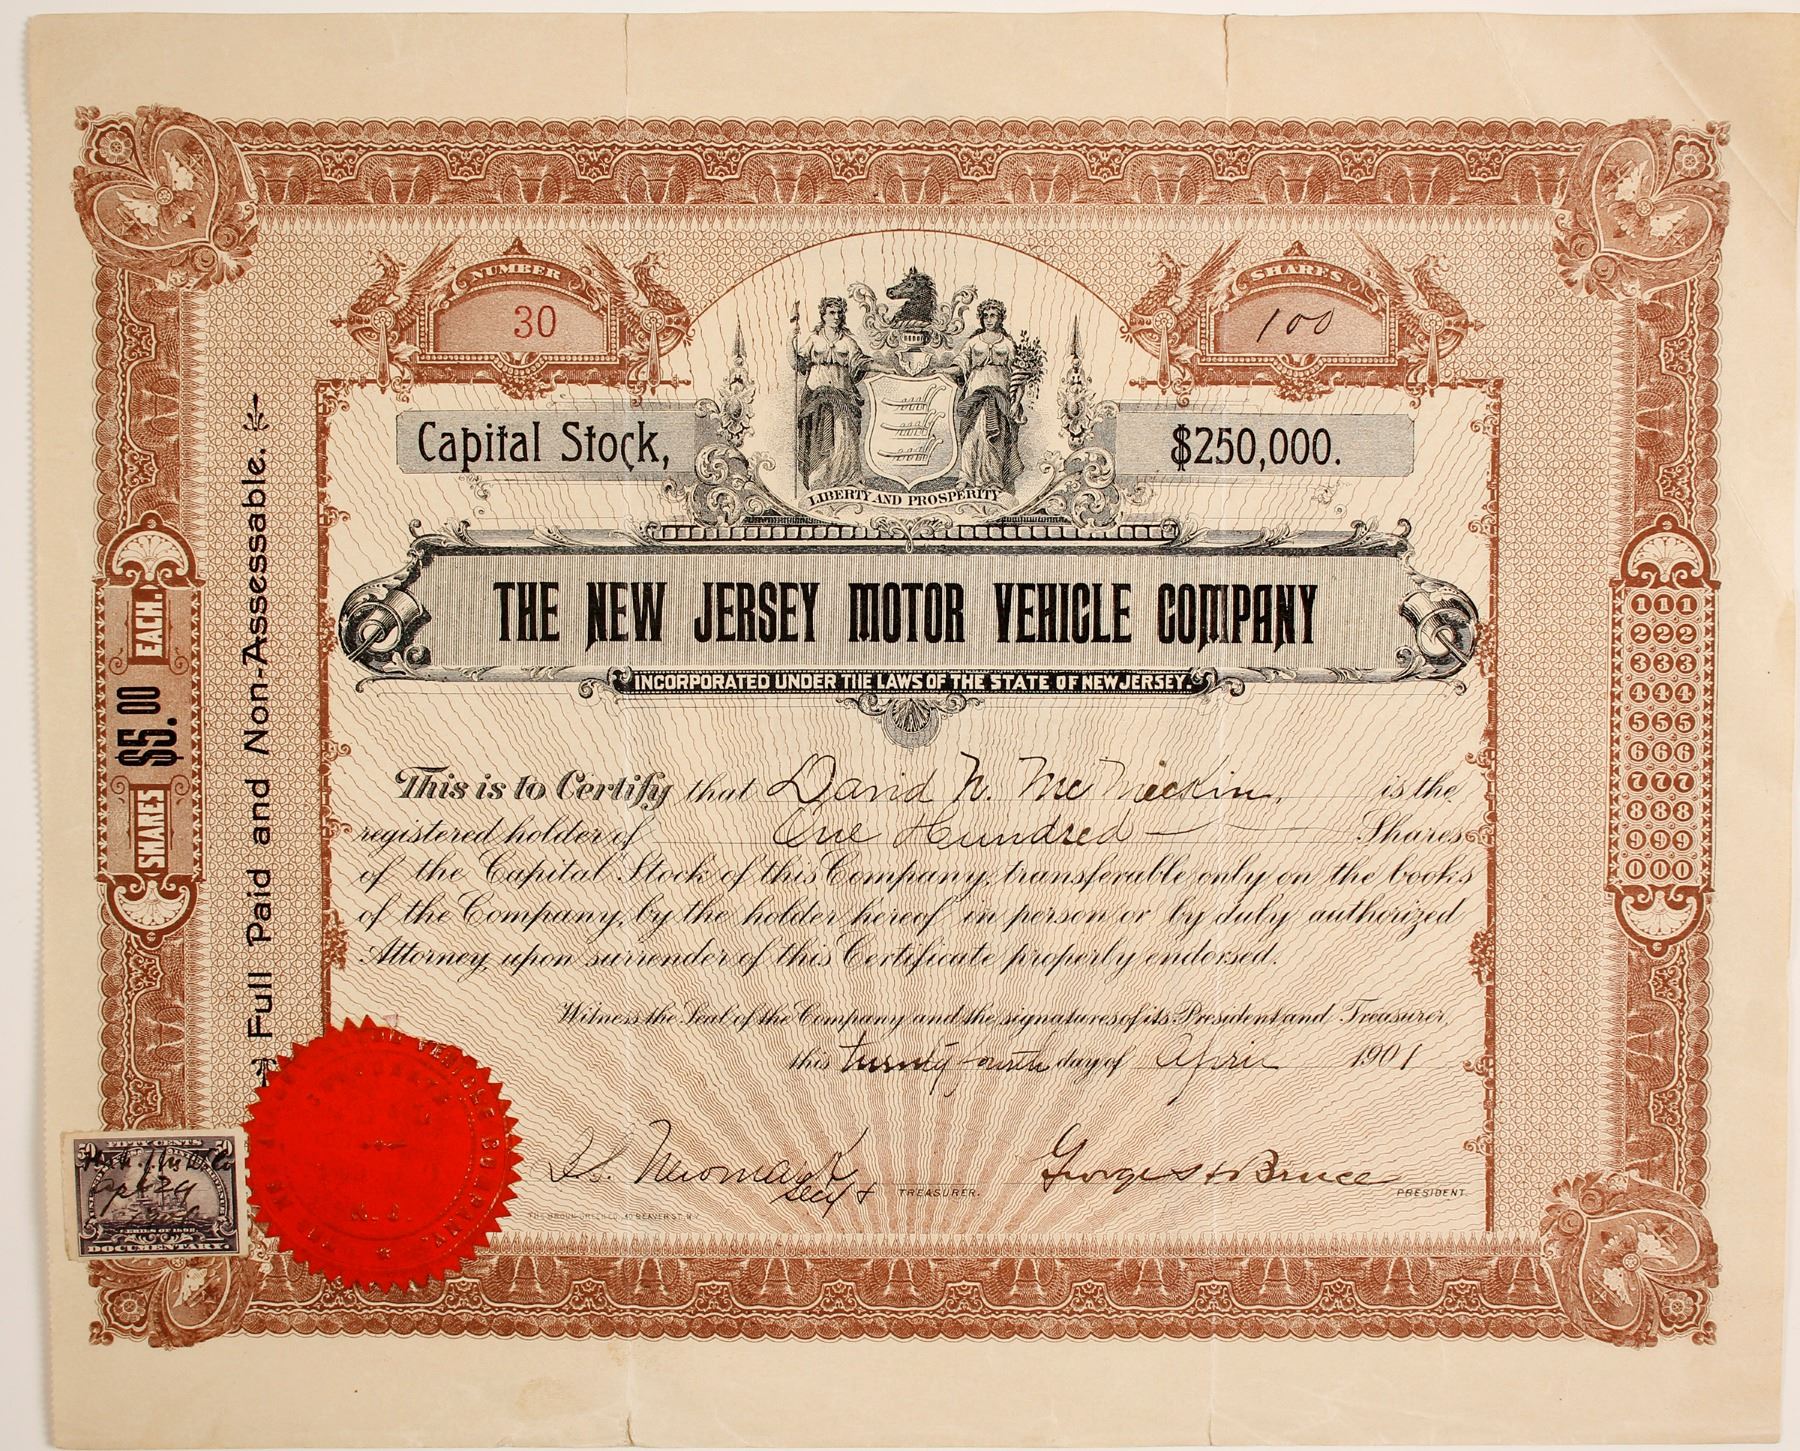 NUMBER
30
SHARES
100
Capital Stock,
$250,000.
LIBERTY AND PROSPERITY
THE NEW JERSEY MOTOR VEHICLE COMPANY
INCORPORATED UNDER THE LAWS OF THE STATE OF NEW JERSEY.
SHARES $5.00 EACH.
Full Paid and Non-Assessable.
This is to Certify that David N. McMickin, is the
registered holder of One Hundred Shares
of the Capital Stock of this Company, transferable only on the books
of the Company, by the holder hereof in person or by duly authorized
Attorney, upon surrender of this Certificate properly endorsed.
Witness the Seal of the Company and the signatures of its President and Treasurer,
this twenty day of April 1901
Secy & TREASURER.
George Bruce PRESIDENT.
111
222
333
444
555
666
777
888
999
000
50 FIFTY CENTS 50
DOCUMENTARY